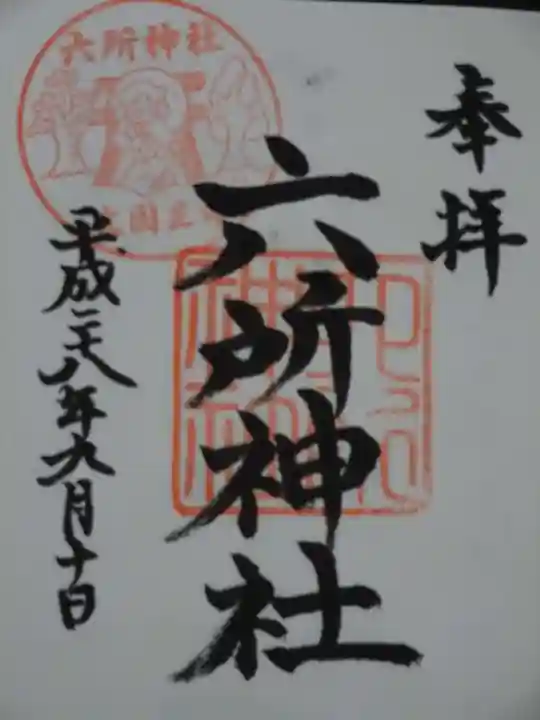 奉拝
六所神社
六所神社
平成二十八年九月十日